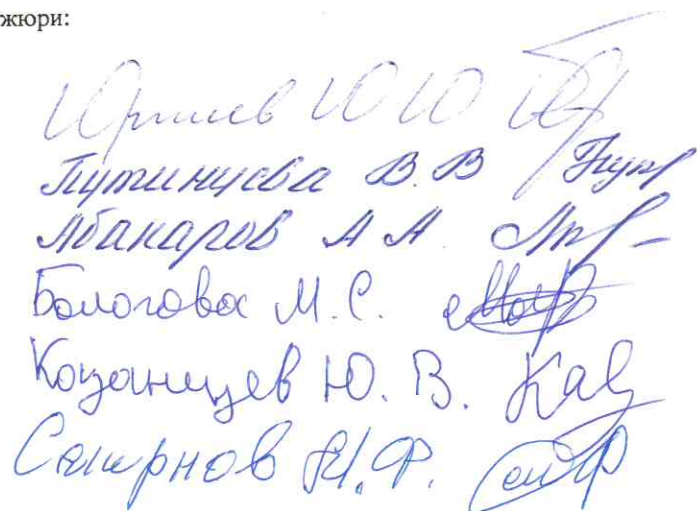 жюри:
Ю Ю
Путинцева В. В
Абакаров А А.
Бологова М. С.
Казанцев Ю. В.
Смирнов И. Ф.